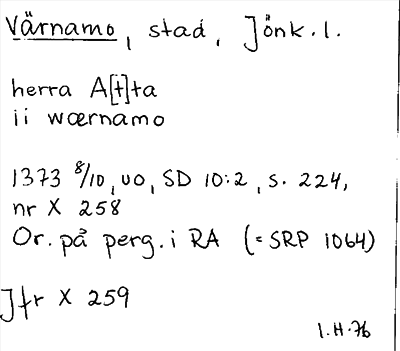 Värnamo, stad, Jönk. l.
herra A[t]ta
ii wærnamo
1373 8/10, uo, SD 10:2, s. 224,
nr X 258
Or. på perg. i RA (= SRP 1064)
Jfr X 259
I.H. 76